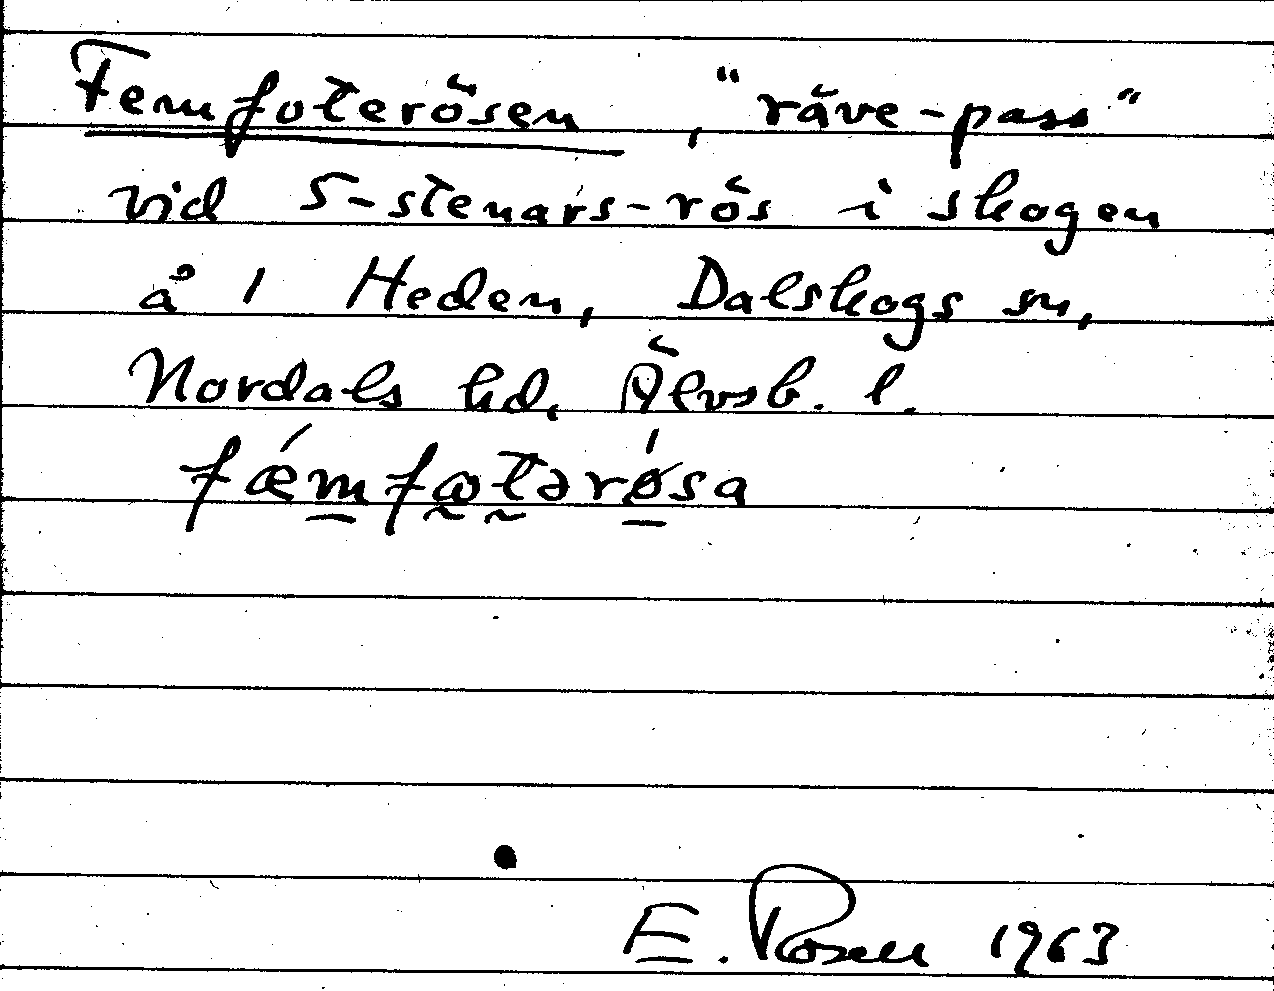 Femfoterösen, "räve-pass"
vid 5-stenars-rös i skogen
å 1 Heden, Dalskogs sn,
Nordals hd, Älvsb. l.
fæ´mfɷtərø´sa
E. Rosell 1963